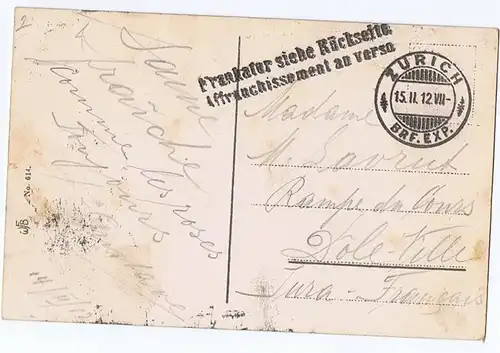 Frankatur siehe Rückseite.
Affranchissement au verso
ZURICH
15.II.12.VII-
BRF. EXP.
Jaune
fraîche
comme les roses
Toujours
Madame
M. Lavrut
Rampe du Cours
Dôle-Ville
Jura-Français
W/B No. 614
2